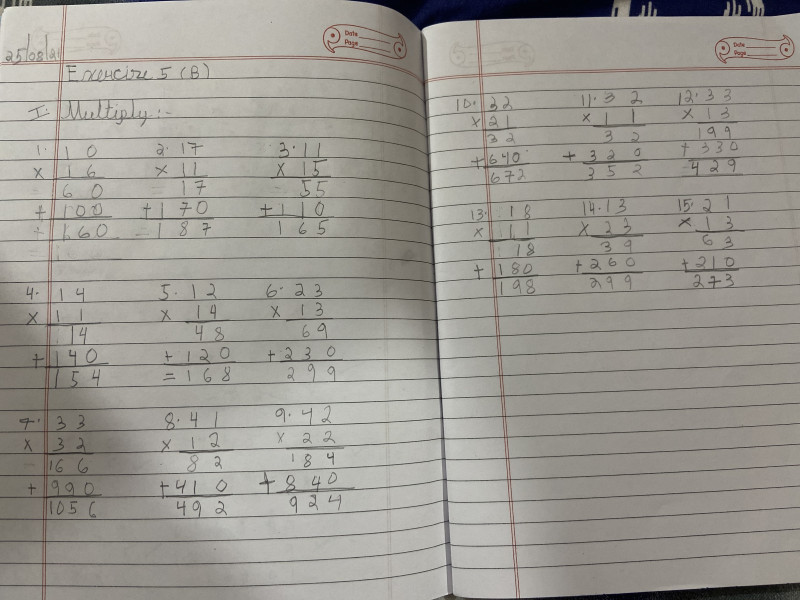 25/08/21
Date
Page
Exercise 5 (B)
I. Multiply :-
1. 10 2. 17 3. 11
× 16 × 11 × 15
60 = 17 55
+ 100 + 170 + 110
+ 160 = 187 165
4. 14 5. 12 6. 23
× 11 × 14 × 13
14 48 69
+ 140 + 120 + 230
154 = 168 299
7. 33 8. 41 9. 42
× 32 × 12 × 22
166 82 184
+ 990 + 410 + 840
1056 492 924
Date
Page
10. 32 11. 32 12. 33
× 21 × 11 × 13
32 32 199
+ 640 + 320 + 330
672 352 429
13. 18 14. 13 15. 21
× 11 × 23 × 13
18 39 63
+ 180 + 260 + 210
198 299 273